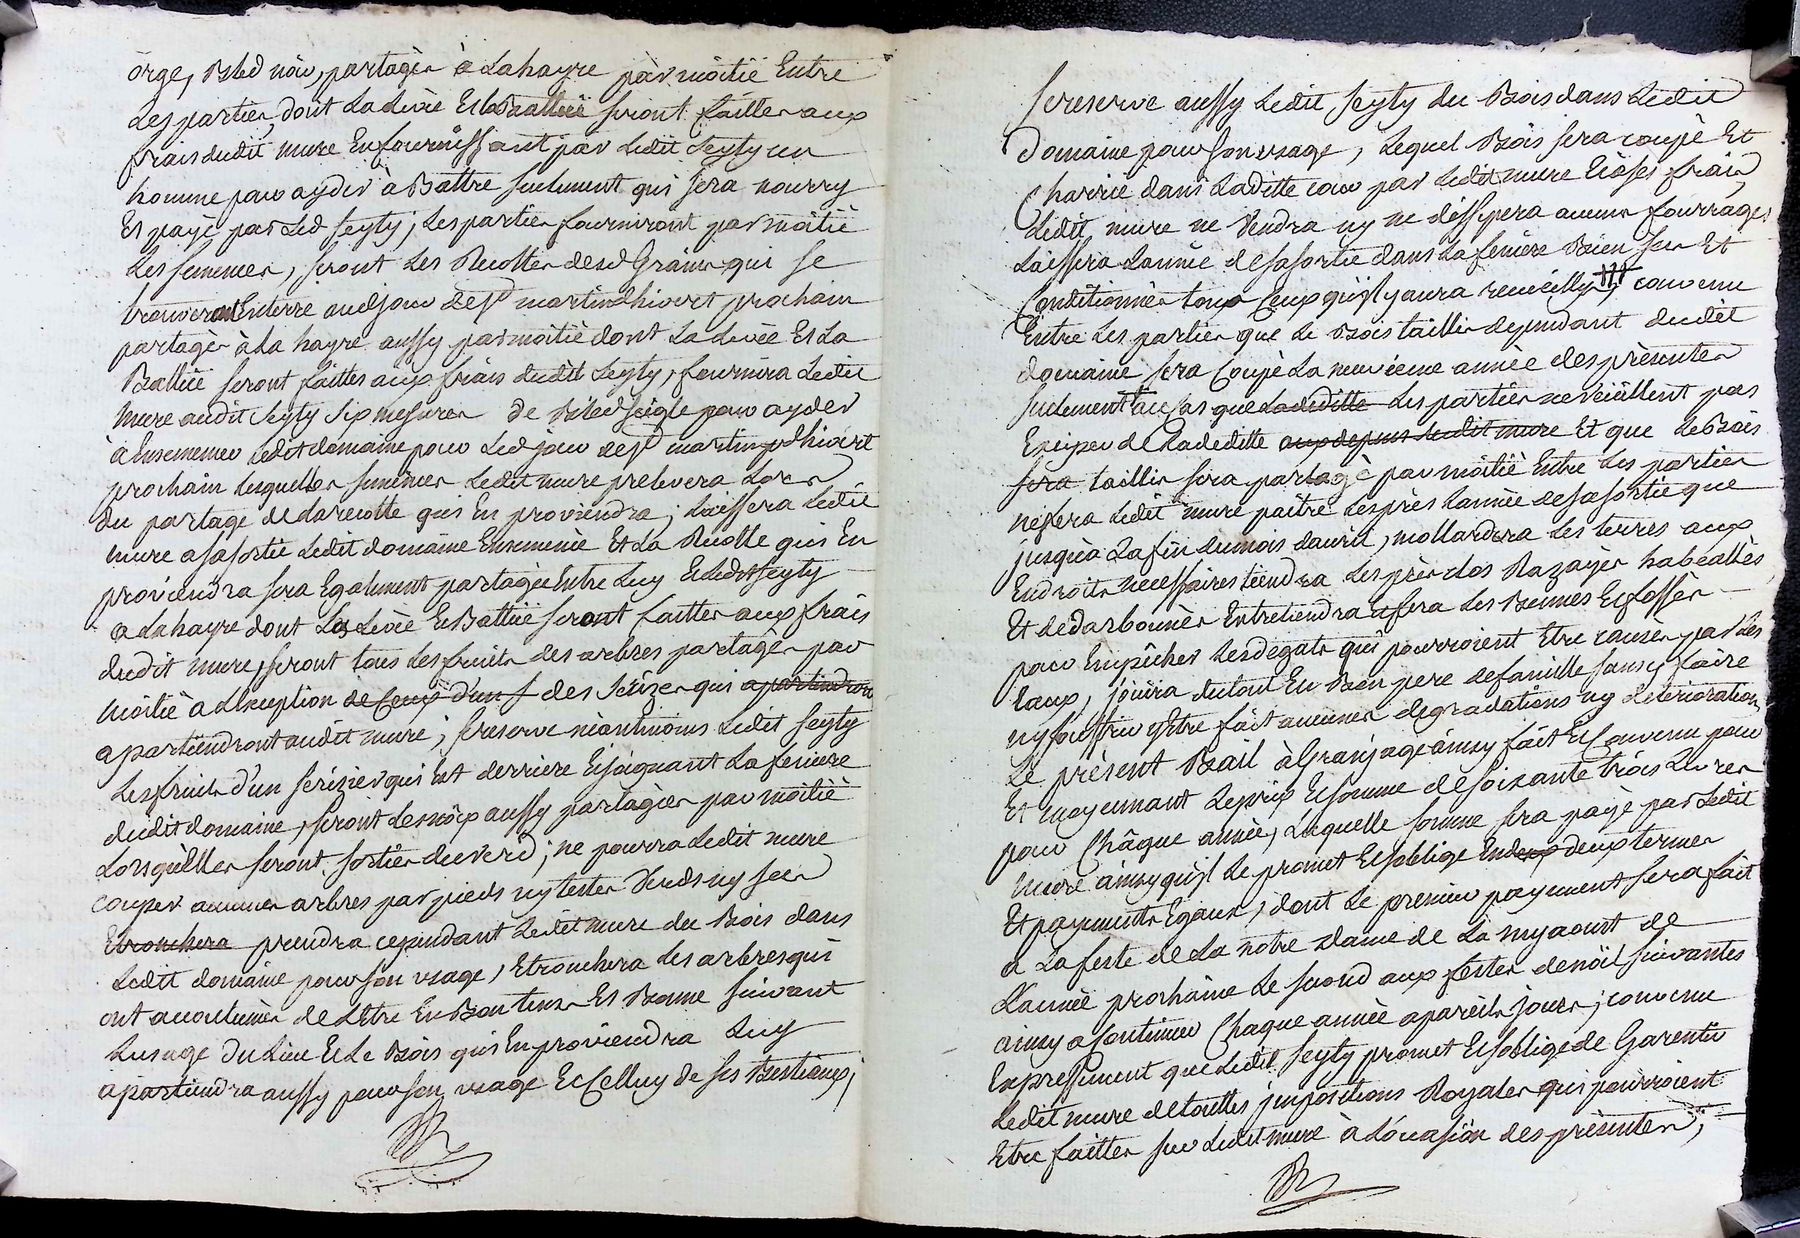 orge, Bled noir, partagés à Lahayre par moitié Entre
Les parties, dont La Levée Et la Battüe seront faittes aux
frais dudit mure En fournissant par Ledit Seyty un
homme pour ayder à Battre seulement qui sera nourry
Et payé par Led Seyty; Les parties fourniront par moitié
Les semences, seront Les Recoltes desd Grains qui se
trouveront Enterre audjour de st martin d'hivert prochain
partagés à La hayre aussy par moitié dont La Levée Et La
Battüe seront faittes aux frais dudit Seyty, fournira Ledit
mure audit Seyty six mesures de Bled seigle pour ayder
à Ensemencer Ledit domaine pour Led jour de st martin d'hivert
prochain Lesquelles semences Ledit mure prelevera Lors
du partage de La recolte qui En proviendra; Laissera Ledit
mure a sa sortie Ledit domaine Ensemencé Et La Recolte qui En
proviendra sera Egalement partagée Entre Luy Et Ledit Seyty
a Lahayre dont La Levée Et Battüe seront faittes aux frais
dudit mure, seront tous Les fruits des arbres partagés par
moitié a L'exception de Ceux d'un f des serizes qui apartiendron
apartiendront audit mure; se reserve néantmoins Ledit Seyty
Les fruits d'un serizier qui Est derriere Et joignant La feniere
dudit domaine, seront Les noix aussy partagées par moitié
Lorsqu'elles seront sorties du verd; ne pourra Ledit mure
couper aucunes arbres par pieds ny testes Verds ny secs
Etronchera prendra cependant Ledit mure du Bois dans
Ledit domaine pour son usage, Etronchera Les arbres qui
ont accoutumés de L'Etre En Bon tems Et Bonne suivant
Lusage du Lieu Et Le Bois qui En proviendra Luy
apartiendra aussy pour son usage Et Celluy de ses Bestiaux;
se reserve aussy Ledit Seyty du Bois dans Ledit
Domaine pour son usage, Lequel Bois sera coupé Et
Charrié dans Laditte cour par Ledit mure Et à ses frais,
Ledit mure ne Vendra ny ne dissipera aucuns fourrages
Laissera L'année de sa sortie dans La feniere Bien secs Et
Conditionnés tous Ceux qu'il y aura recueilly, convenu
Entre Les parties que Le Bois taillis dependant dudit
domaine sera Coupé La neuvieme année des présentes
seulement au Cas que Ladeditte Les parties ne veuillent pas
Exciper de Ladeditte aux depens dudit mure Et que Le Bois
sera taillis sera partagé par moitié Entre Les parties
ne fera Ledit mure paitre Les prés L'année de sa sortie que
jusqu'a La fin du mois d'avril, mollardera Les terres aux
Endroits necessaires tiendra Les prés clos Razayés habéallés
Et dedarbounés Entretiendra Et fera Les Bennes Et fossés
pour Empêcher Les degats qui pourroient Etre causés par Les
Eaux, jouira du tout En Bon pere de famille sans y faire
ny souffrir y Etre fait aucunes degradations ny déterioration
Le présent Bail à Granjage ainsy fait Et Convenu pour
Et moyennant Le prix Et somme de soixante trois Livres
pour Châque année, Laquelle somme sera payé par Ledit
mure ainsy qu'il Le promet Et s'oblige En deux deux termes
Et payements Egaux, dont Le premier payement sera fait
a La feste de La notre Dame de La my aoust de
L'année prochaine Le second aux festes de noël suivantes
ainsy a Continuer Chaque année a pareils jours; convenu
Expressement que Ledit Seyty promet Et s'oblige de Garentir
Ledit mure de touttes jmpositions Royales qui pourroient
Etre faittes sur Ledit mure à L'ocasion des présentes,